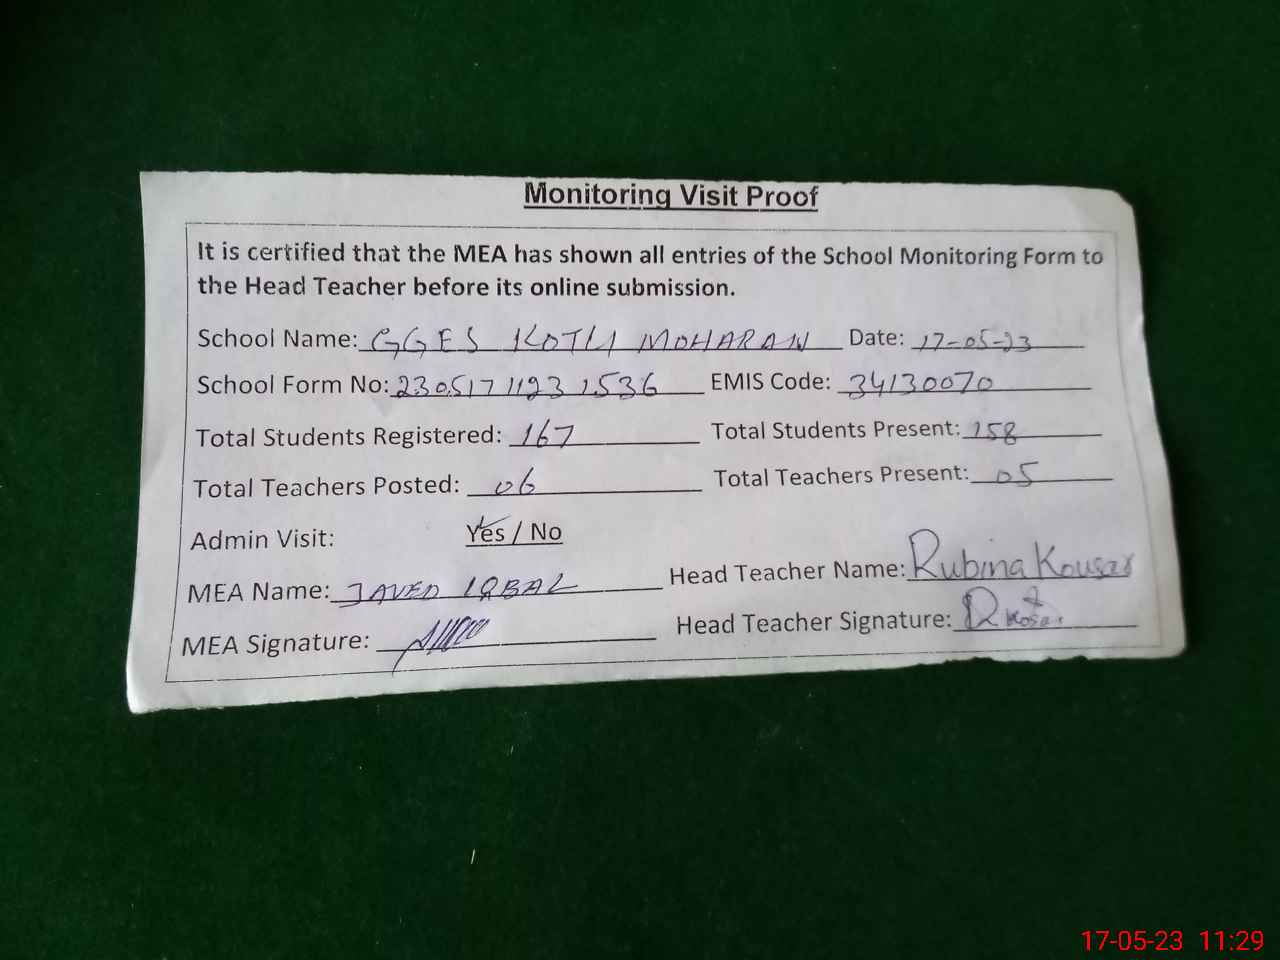 Monitoring Visit Proof
It is certified that the MEA has shown all entries of the School Monitoring Form to
the Head Teacher before its online submission.
School Name: GGES KOTLI MOHARAN Date: 17-05-23
School Form No: 230517 1123 1536 EMIS Code: 34130070
Total Students Registered: 167 Total Students Present: 158
Total Teachers Posted: 06 Total Teachers Present: 05
Admin Visit: Yes / No
MEA Name: JAVED IQBAL Head Teacher Name: Rubina Kousar
MEA Signature: Head Teacher Signature:
17-05-23 11:29